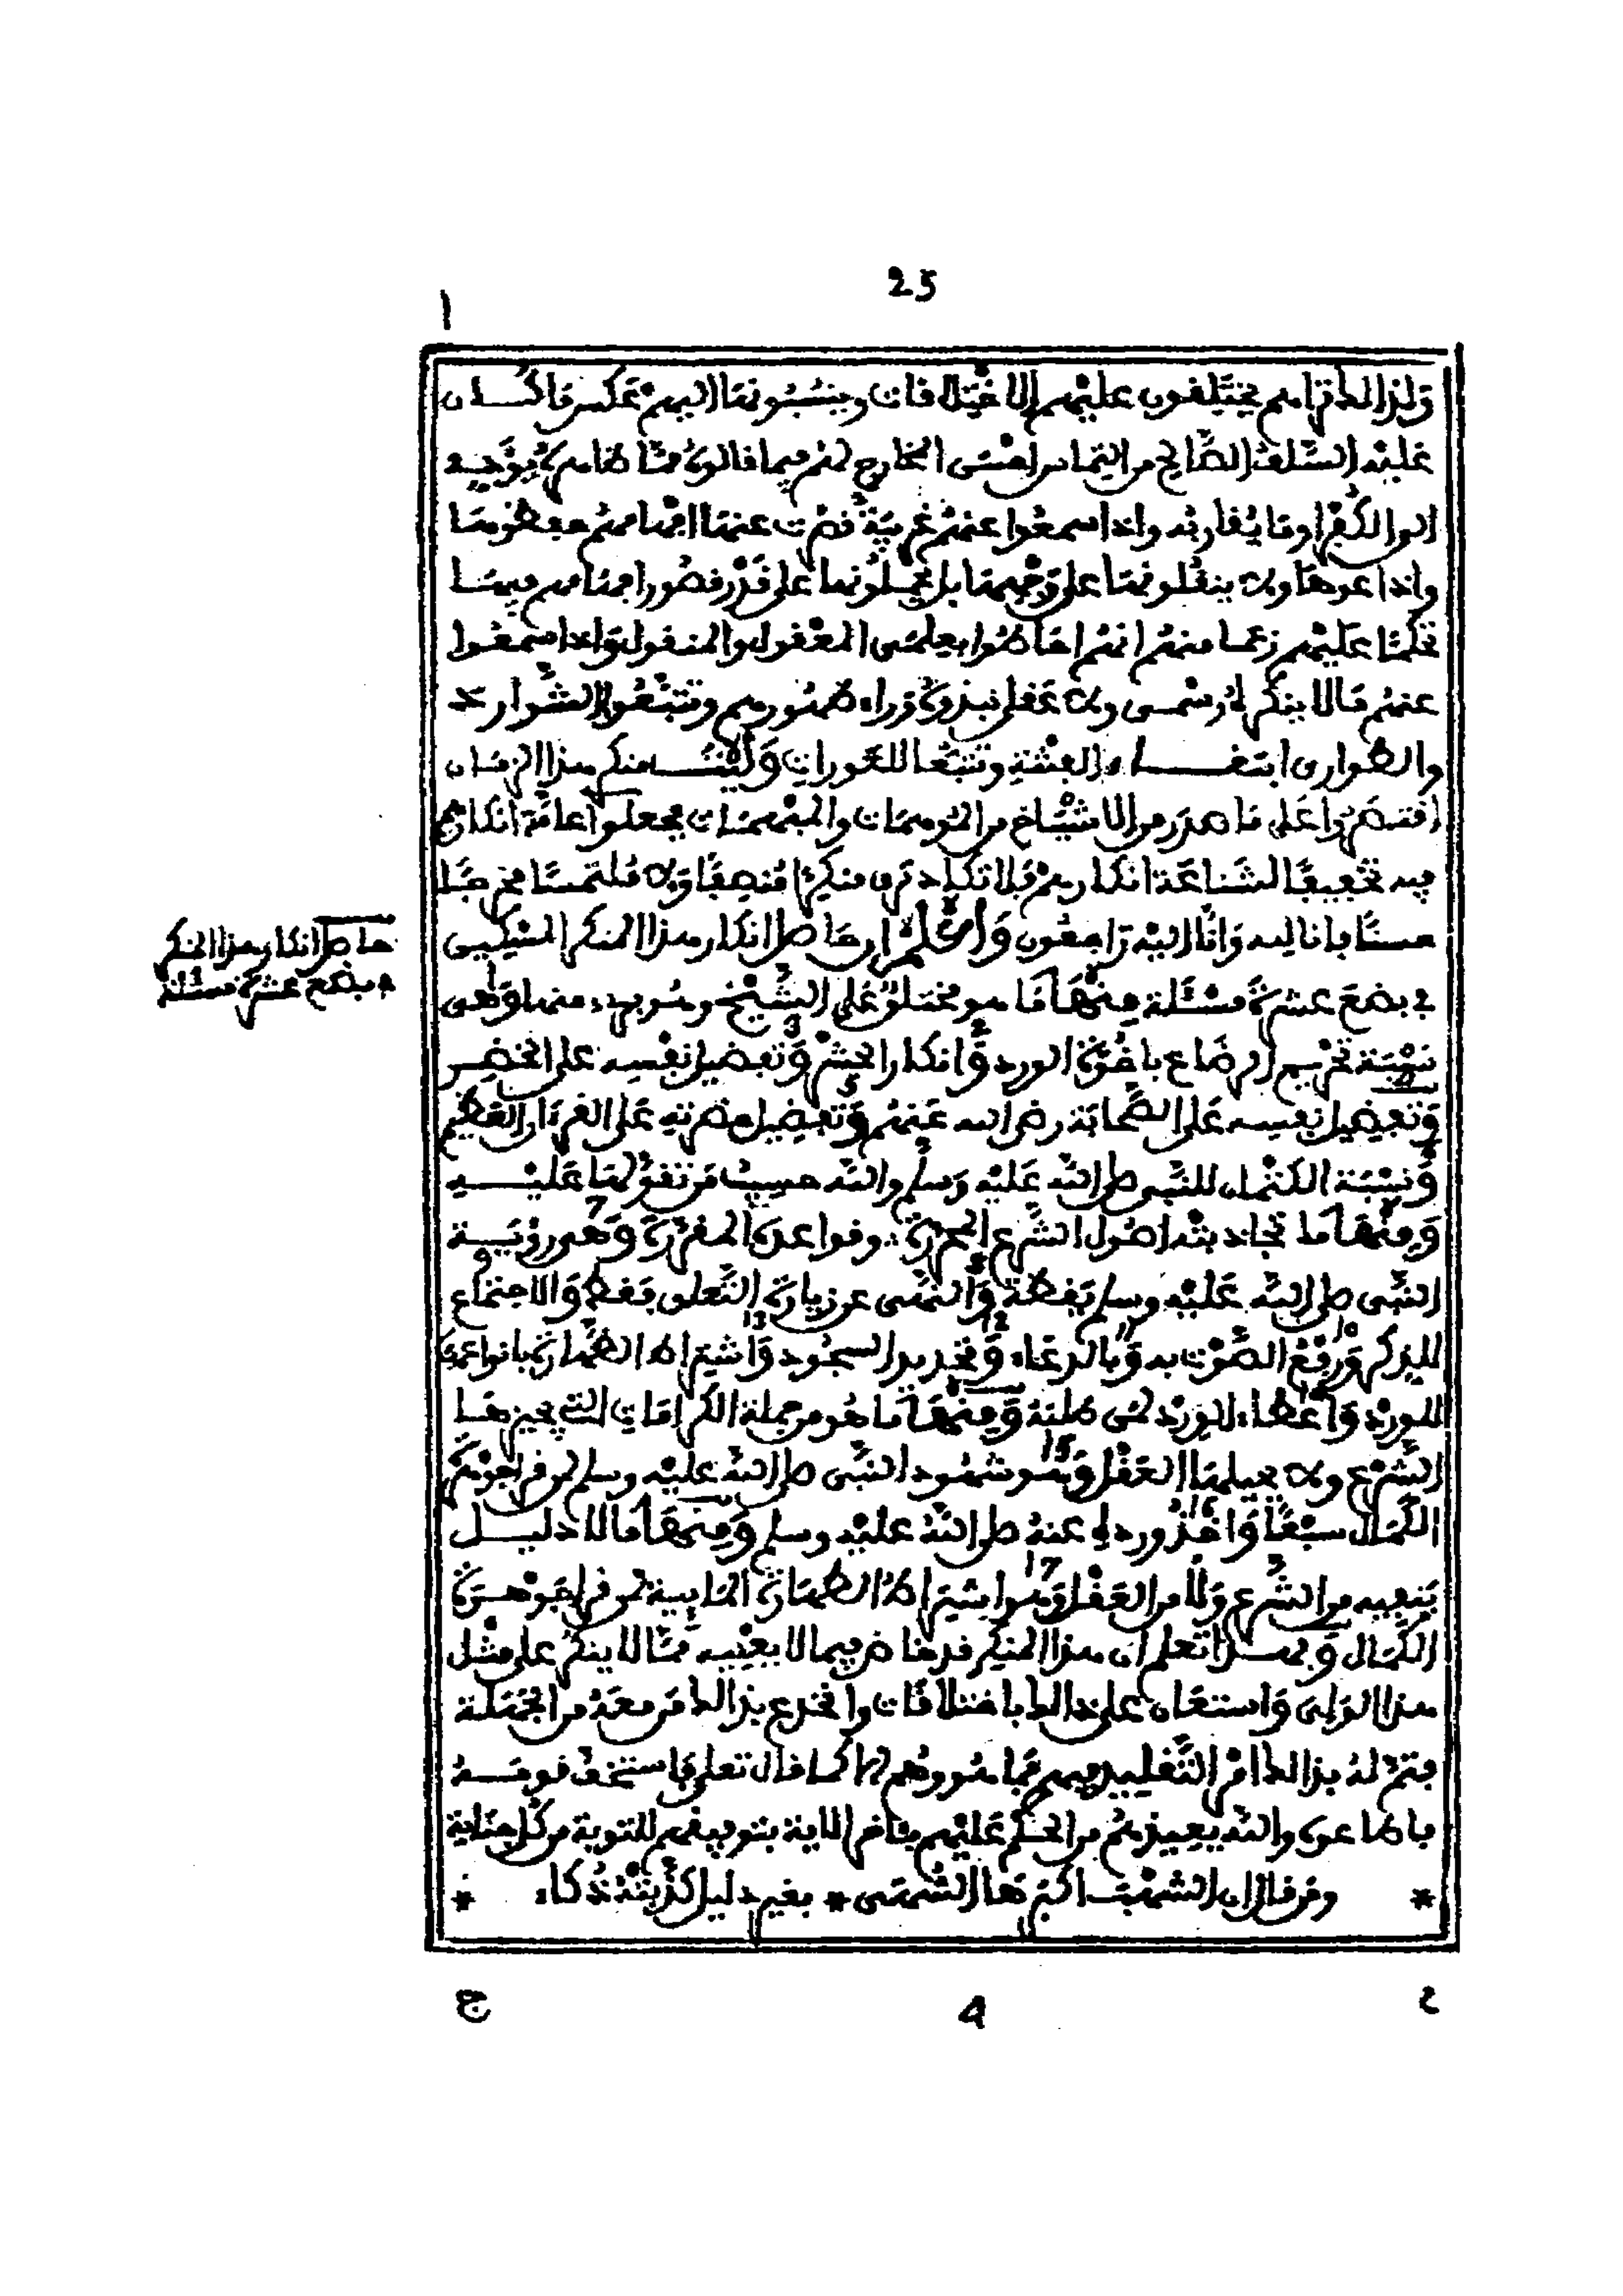 25
ا
ولذالك تراهم يختلفون عليهم الاختلافات وينسبونها اليهم عكس ما كان
عليه السلف الصالح من التماس احسن المخارج لهم فيما قالوه مما ظاهره يؤديه
الى الكفر او ما يقاربه واذا سمعوا عنهم غريبة قصرت عنها افهامهم حفظوها
واذاعوها ولا ينقلونها على وجهها بل يحملونها على قدر قصور افهامهم فيها
تحكما عليهم زعما منهم انهم احاطوا بعلمى المعقول والمنقول واذا سمعوا
عنهم ما لا ينكره شرع ولا عقل نبذوه وراء ظهورهم وتتبعوا الشوارد
والطوارى ابتغاء الفتنة وتتبعا للعورات وليت منكر هذا الزمان
اقتصروا على ما صدر من الاشياخ من الموهمات والمبهمات فجعلوا عامة انكارهم
فيه تخفيفا لشناعة انكارهم فلا تكاد ترى منكرا منصفا ولا ملتمسا مخرجا
حسنا فانا لله وانا اليه راجعون واعلم ان حاصل انكار هذا المنكر المشكى
فى بضع عشرة مسئلة منها ما هو مختلق على الشيخ وهو برىء منها وهى
نسبة تحريم الرضاع باخوة الورد 2 وانكار الحشر 3 وتفضيل نفسه على الخضر
4 وتفضيل نفسه على الصحابة رضى الله عنهم 5 وتفضيل حضرته على القرءان العظيم
6 ونسبة الكتمان للنبى صلى الله عليه وسلم والله حسيب من تقولها عليه
ومنها ما تجاذبته اصول الشرع المحررة وقواعده المقررة 7 وهى رؤية
النبى صلى الله عليه وسلم يقظة 8 والنهى عن زيارة التعلق فقط 9 والاجتماع
للذكر 10 ورفع الصوت به 11 وبالدعاء 12 وتخريد السجود 13 واشتراط الطهارة بانواعها
للورد 14 واعطاء الورد لمن طلبه ومنها ما هو من جملة الكرامات التى يجيزها
الشرع ولا يحيلها العقل 15 وهو شهود النبى صلى الله عليه وسلم لمن قرا جوهرة
الكمال سبعا 16 واخذ ورده عنه صلى الله عليه وسلم ومنها ما لا دليل
ينفيه من الشرع ولا من العقل 17 وهو اشتراط الطهارة المائية لمن قرا جوهرة
الكمال وبهذا تعلم ان هذا المنكر قد خاض فيما لا يعنيه مما لا ينكر على مثل
هذا الولى واستعان على ذالك باختلافات وانخدع بذالك من معه من الجهلة
فتم له بذالك امر التقليد فيهم فما هو وهم الا كما قال تعلى فاستخف قومه
فاطاعوه والله يعيذهم من الحكم عليهم بتمام الاية بتوفيقهم للتوبة من كل جناية
* ومن قال ان الشهب اكبرها السهى * بغير دليل كذبته ذكاء *
حاصل انكار هذا المنكر
فى بضع عشرة مسئلة
ح
4
ج